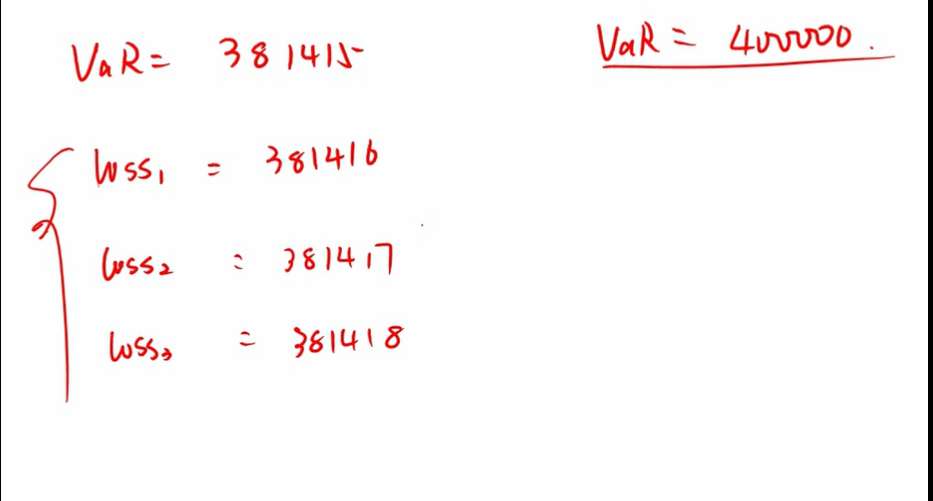 VaR = 381415
VaR = 400000.
loss₁ = 381416
loss₂ = 381417
loss₃ = 381418